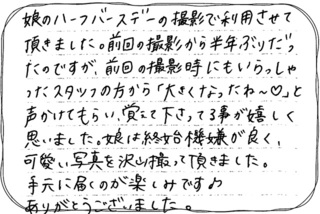 娘のハーフバースデーの撮影で利用させて
頂きました。前回の撮影から半年ぶりだっ
たのですが、前回の撮影時にもいらっしゃ
ったスタッフの方から「大きくなったね〜♡」と
声かけてもらい、覚えて下さってる事が嬉しく
思いました。娘は終始機嫌が良く、
可愛い写真を沢山撮って頂きました。
手元に届くのが楽しみです♪
ありがとうございました。